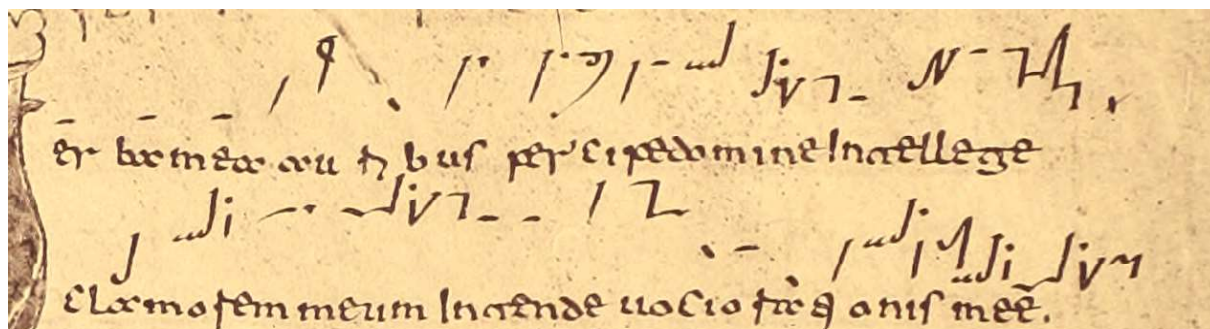 er ba mea au ri bus percipe domine Intellege
clamorem meum Intende uoci orationis mee.